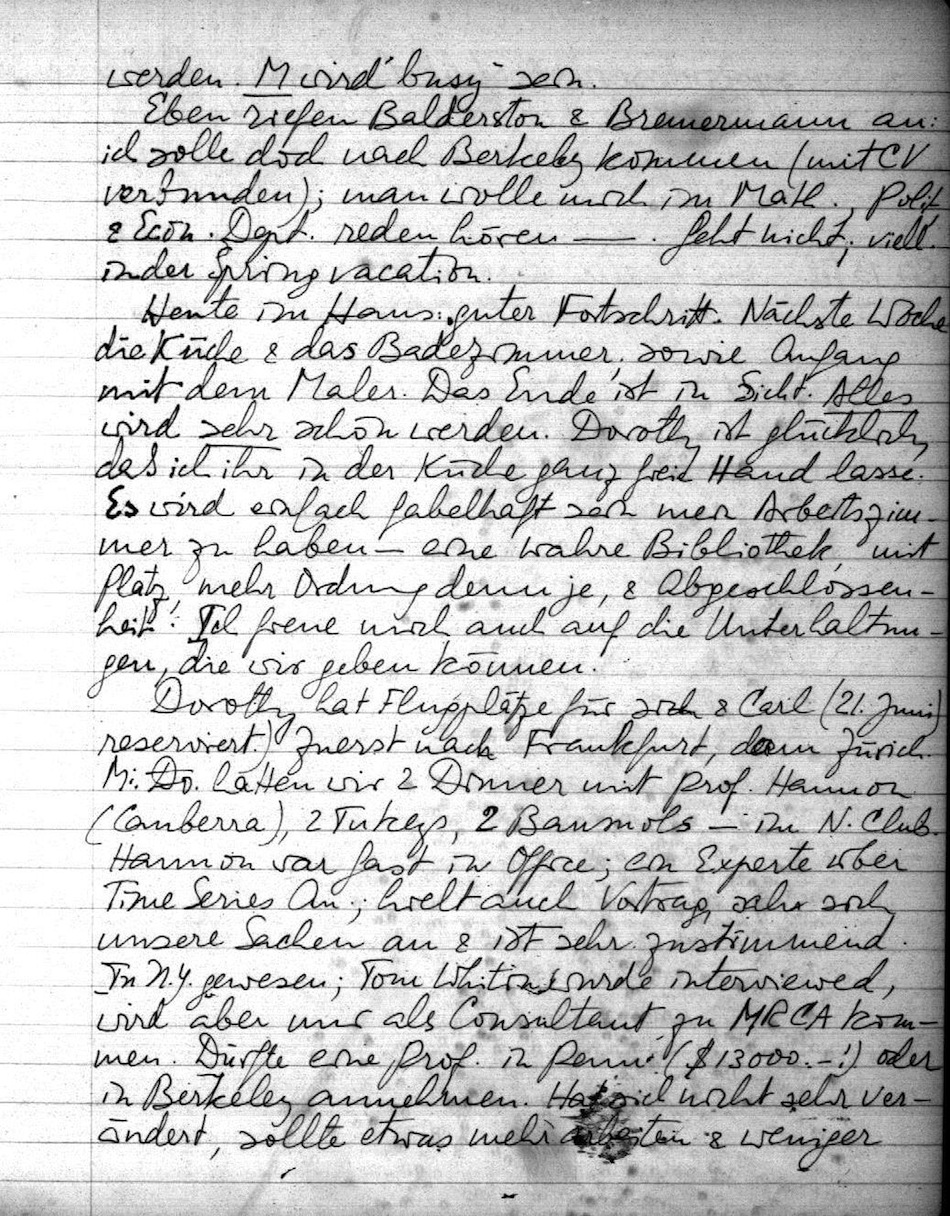 werden. M wird "busy" sein.
Eben riefen Balderston & Bremermann an:
ich solle doch nach Berkeley kommen (mit CV
verbunden); man wolle mich im Math., Polit.
& Econ. Dept. reden hören —. Geht nicht; viell.
in der Spring vacation.
Heute im Haus: guter Fortschritt. Nächste Woche
die Küche & das Badezimmer, sowie Anfang
mit dem Maler. Das Ende ist in Sicht. Alles
wird sehr schön werden. Dorothy ist glücklich,
daß ich ihr in der Küche ganz freie Hand lasse.
Es wird einfach fabelhaft sein mein Arbeitszim-
mer zu haben – eine wahre Bibliothek, mit
Platz, mehr Ordnung denn je, & Abgeschlossen-
heit! Ich freue mich auch auf die Unterhaltun-
gen, die wir geben können.
Dorothy hat Flugplätze für sich & Carl (21. Juni)
reserviert.) Zuerst nach Frankfurt, dann Zürich.
Mi. Do. hatten wir 2 Dinner mit Prof. Hannon
(Canberra), 2 Tukeys, 2 Baumols – im N. Club.
Hannon war fast in Office; ein Experte über
Time Series An.; hielt auch Vortrag, sah sich
unsere Sachen an & ist sehr zustimmend.
In N.Y. gewesen; Tom Whitin wurde interviewed,
wird aber nur als Consultant zu MRCA kom-
men. Dürfte eine Prof. in Penn. ($13000.–!) oder
in Berkeley annehmen. Hat sich nicht sehr ver-
ändert, sollte etwas mehr arbeiten & weniger